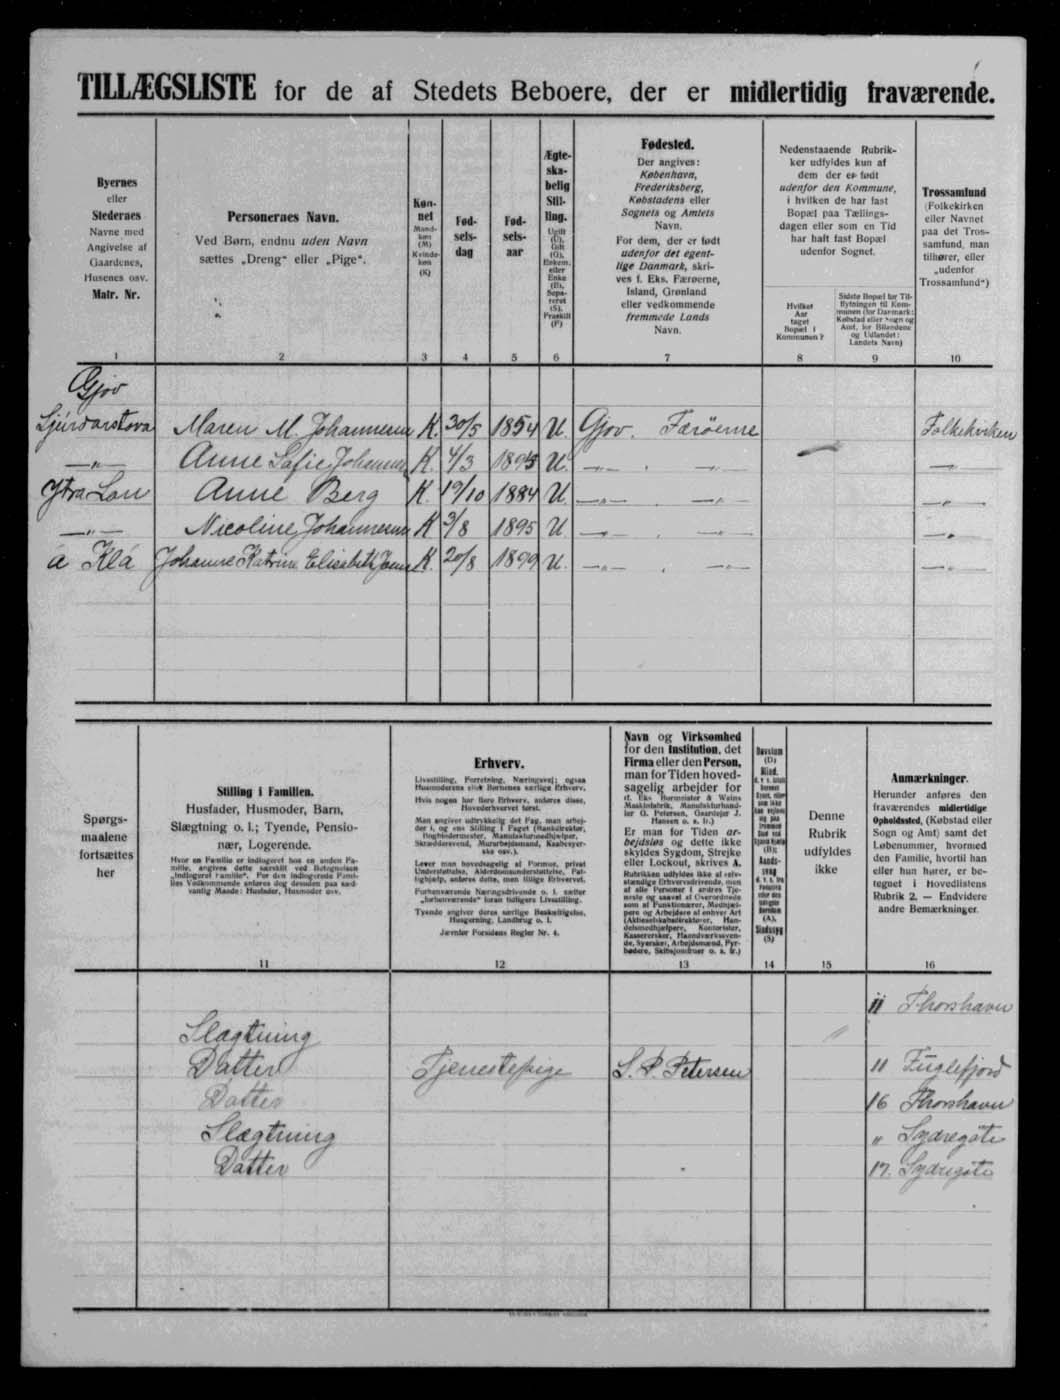 TILLÆGSLISTE for de af Stedets Beboere, der er midlertidig fraværende.
Byernes
eller
Stedernes
Navne med
Angivelse af
Gaardenes,
Husenes osv.
Matr. Nr.
1
Personernes Navn.
Ved Børn, endnu uden Navn
sættes „Dreng“ eller „Pige“.
2
Køn-
net
Mand-
køn
(M)
Kvinde-
køn
(K)
3
Fød-
sels-
dag
4
Fød-
sels-
aar
5
Ægte-
ska-
belig
Stil-
ling.
Ugift
(U),
Gift
(G),
Enkem.
eller
Enke
(E),
Sepa-
reret
(S),
Fraskilt
(F)
6
Fødested.
Der angives:
København,
Frederiksberg,
Købstadens eller
Sognets og Amtets
Navn.
For dem, der er født
udenfor det egent-
lige Danmark, skri-
ves f. Eks. Færøerne,
Island, Grønland
eller vedkommende
fremmede Lands
Navn.
7
Nedenstaaende Rubrik-
ker udfyldes kun af
dem der er født
udenfor den Kommune,
i hvilken de har fast
Bopæl paa Tællings-
dagen eller som en Tid
har haft fast Bopæl
udenfor Sognet.
Hvilket
Aar
taget
Bopæl i
Kommunen?
8
Sidste Bopæl før Til-
flytningen til Kom-
munen (for Danmark:
Købstad eller Sogn og
Amt, for Bilandene
og Udlandet:
Landets Navn)
9
Trossamfund
(Folkekirken
eller Navnet
paa det Tros-
samfund, man
tilhører, eller
„udenfor
Trossamfund“)
10
Gjov
Ljúrdarstova Maren M. Johannesen K. 30/5 1854 U. Gjov. Færöerne Folkekirken
—„— Anne Sofie Johannesen K. 4/3 1895 U. —„— . —„— —„—
Ytra Lon Anne Berg K. 19/10 1884 U. —„— . —„— —„—
—„— Nicoline Johannesen K 3/8 1895 U. —„— . —„— —„—
á Klá Johanne Katrine Elisabeth K. 20/8 1899 U. —„— . —„— —„—
Spørgs-
maalene
fortsættes
her
Stilling i Familien.
Husfader, Husmoder, Barn,
Slægtning o. l.; Tyende, Pensio-
nær, Logerende.
Hvor en Familie er indlogeret hos en anden Fa-
milie, angives dette særskilt ved Betegnelsen
„Indlogeret Familie“. For den indlogerede Fami-
lies Vedkommende anføres dog desuden paa sæd-
vanlig Maade: Husfader, Husmoder osv.
11
Erhverv.
Livsstilling, Forretning, Næringsvej; ogsaa
Husmoderens eller Børnenes særlige Erhverv.
Hvis nogen har flere Erhverv, anføres disse,
Hovederhvervet først.
Man angiver udtrykkelig det Fag, man arbej-
der i, og ens Stilling i Faget (Bankdirektør,
Bogbindermester, Manufakturmedhjælper,
Skræddersvend, Murarbejdsmand, Kaabesyer-
ske osv.).
Lever man hovedsagelig af Formue, privat
Understøttelse, Alderdomsunderstøttelse, Fat-
tighjælp, anføres dette, men tillige Erhvervet.
Forhenværende Næringsdrivende o. l. sætter
„forhenværende“ foran tidligere Livsstilling.
Tyende angiver deres særlige Beskæftigelse,
Husgerning, Landbrug o. l.
Jævnfør Forsidens Regler Nr. 4.
12
Navn og Virksomhed
for den Institution, det
Firma eller den Person,
man for Tiden hoved-
sagelig arbejder for
(f. Eks Burmeister & Wains
Maskinfabrik, Manufakturhand-
ler G. Petersen, Gaardejer J.
Hansen o. s. fr.)
Er man for Tiden ar-
bejdsløs og dette ikke
skyldes Sygdom, Strejke
eller Lockout, skrives A.
Rubrikken udfyldes ikke af selv-
stændige Erhvervsdrivende, men
af alle Personer i andres Tje-
neste og saavel af Overordnede
som af Funktionærer, Medhjæl-
pere og Arbejdere af enhver Art
(Aktieselskabsdirektører, Han-
delsmedhjælpere, Kontorister,
Kassererster, Haandværkssven-
de, Syersker, Arbejdsmænd, Fyr-
bødere, Skibsjomfruer o. s. fr.)
13
Døvstum
(D)
Blind,
14
Denne
Rubrik
udfyldes
ikke
15
Anmærkninger.
Herunder anføres den
fraværendes midlertidige
Opholdssted, (Købstad eller
Sogn og Amt) samt det
Løbenummer, hvormed
den Familie, hvortil han
eller hun hører, er be-
tegnet i Hovedlistens
Rubrik 2. — Endvidere
andre Bemærkninger.
16
11 Thorshavn
Slægtning
Datter Tjenestepige S. P. Petersen 11 Fuglefjord
Datter 16 Thorshavn
Slægtning „ Sydregöte
Datter 17. Sydregöte